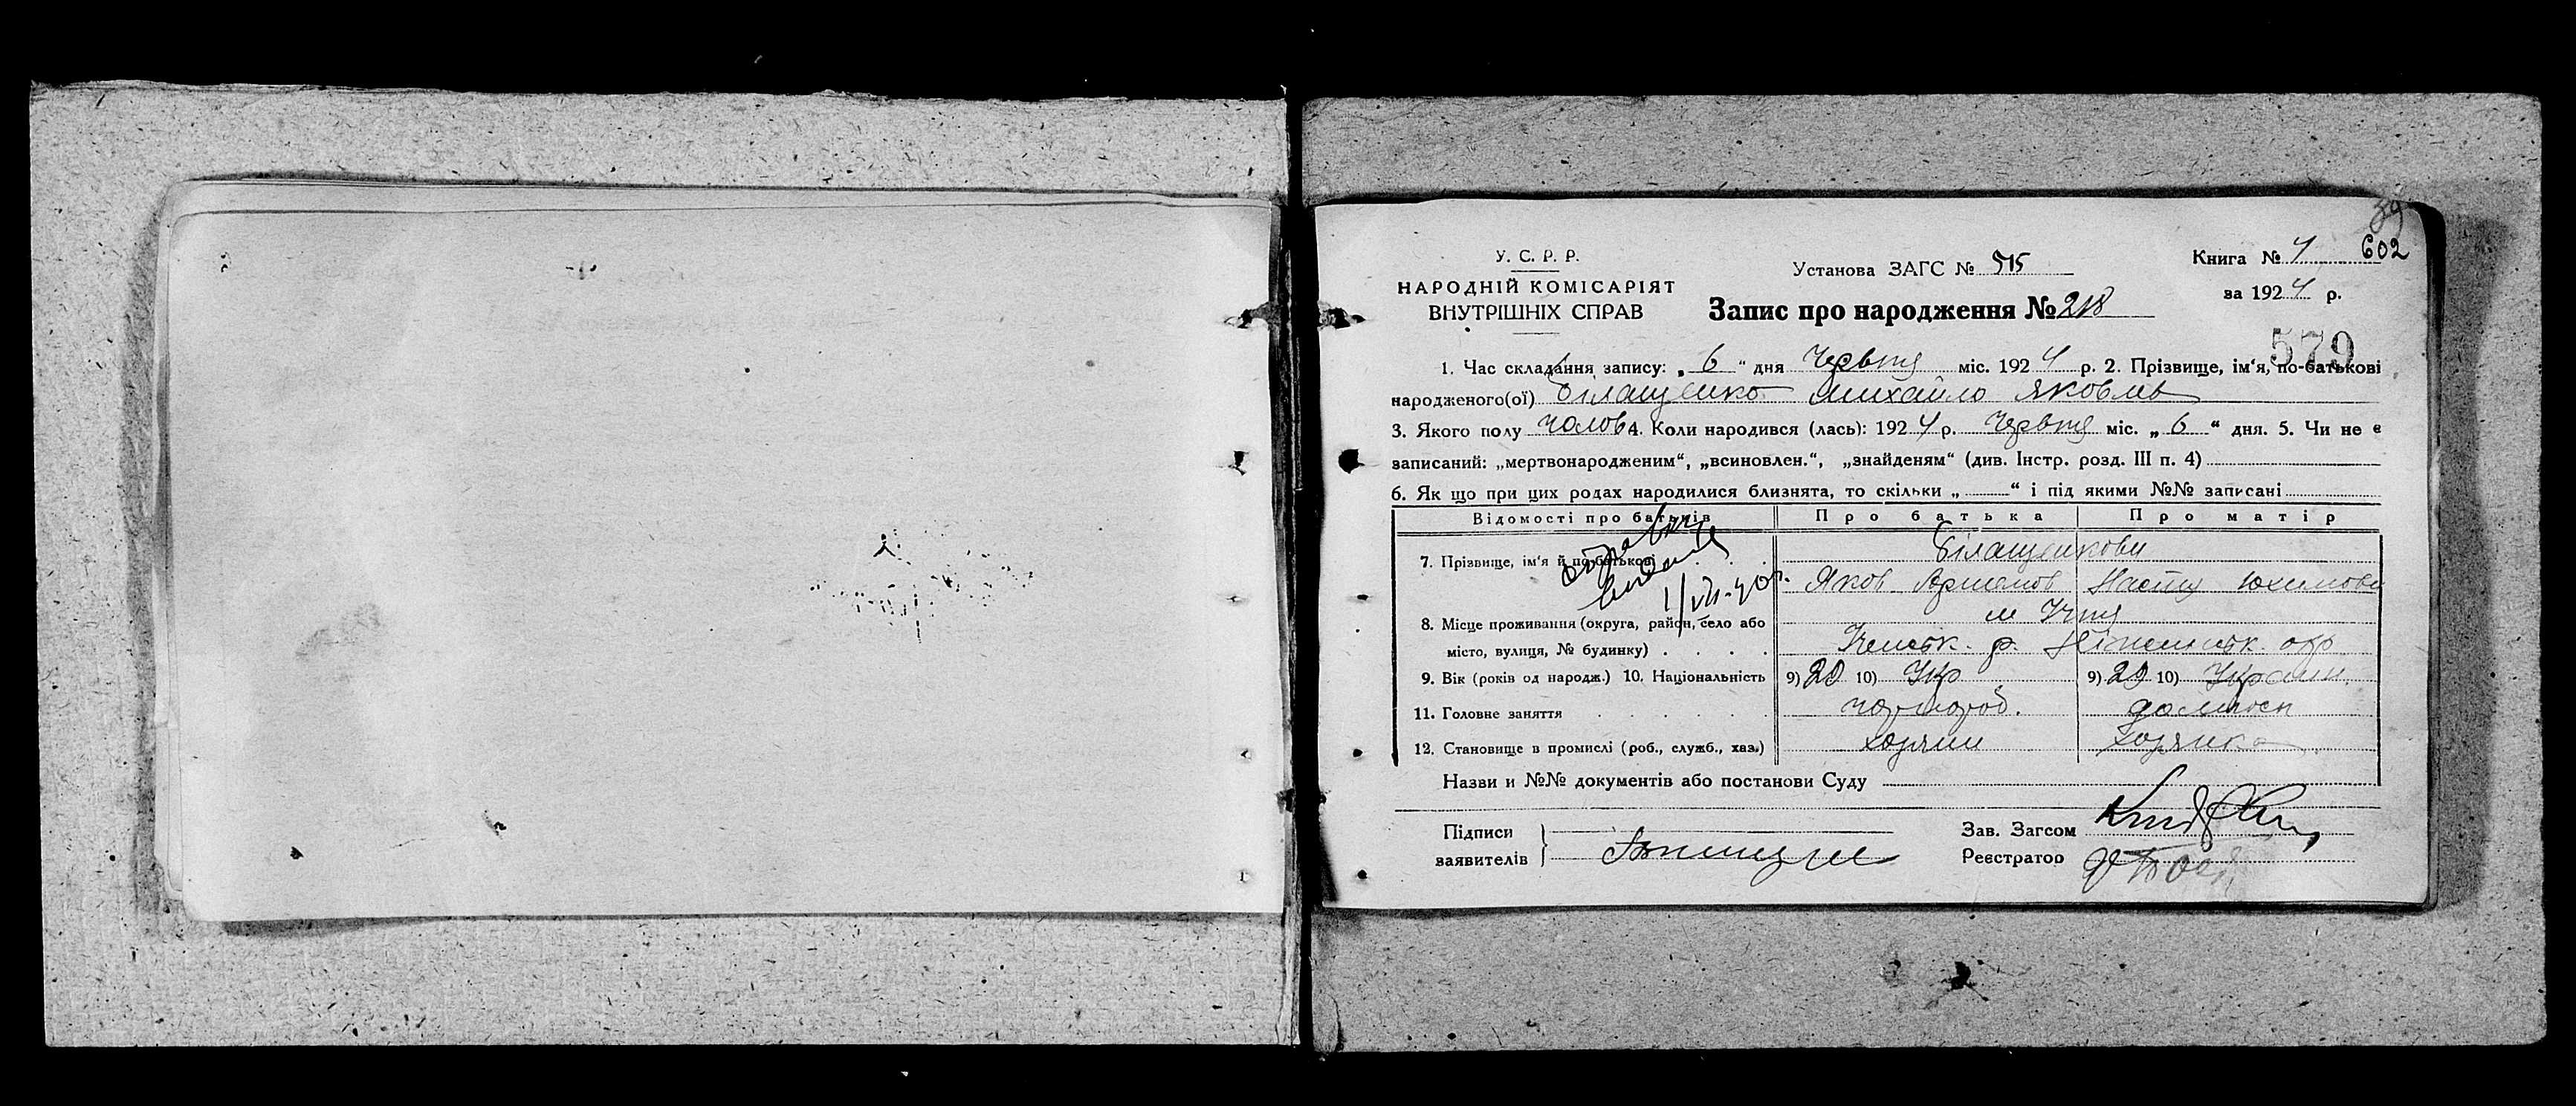 39
У. С. Р. Р.
НАРОДНІЙ КОМІСАРІЯТ
ВНУТРІШНІХ СПРАВ
Установа ЗАГС № 515
Книга № 4 602
за 1924 р.
Запис про народження № 218
579
1. Час складання запису: „6“ дня Червня міс. 1924 р. 2. Прізвище, ім'я, по-батькові
народженого(ої) Білащенко Михайло Яковль
3. Якого полу чолов 4. Коли народився (лась): 1924 р. Червня міс. „6“ дня. 5. Чи не є
записаний: „мертвонародженим“, „всиновлен.“, „знайденям“ (див. Інстр. розд. III п. 4)
6. Як що при цих родах народилися близнята, то скільки „ “ і під якими №№ записані
Відомості про батьків Про батька Про матір
Білащенкови
7. Прізвище, ім'я й по-батькові
Яков Артемов Настя Юхимова
1/VII-40р.
м Ічня
8. Місце проживання (округа, район, село або
місто, вулиця, № будинку)
Іченськ. р. Ніженськ. окр
9. Вік (років од народж.) 10. Національність 9) 29 10) Укр 9) 29 10) Україн.
11. Головне заняття домгосп
12. Становище в промислі (роб., служб., хаз.) хозяин хозяйка
Назви и №№ документів або постанови Суду
Підписи
заявителів
Зав. Загсом
Реєстратор